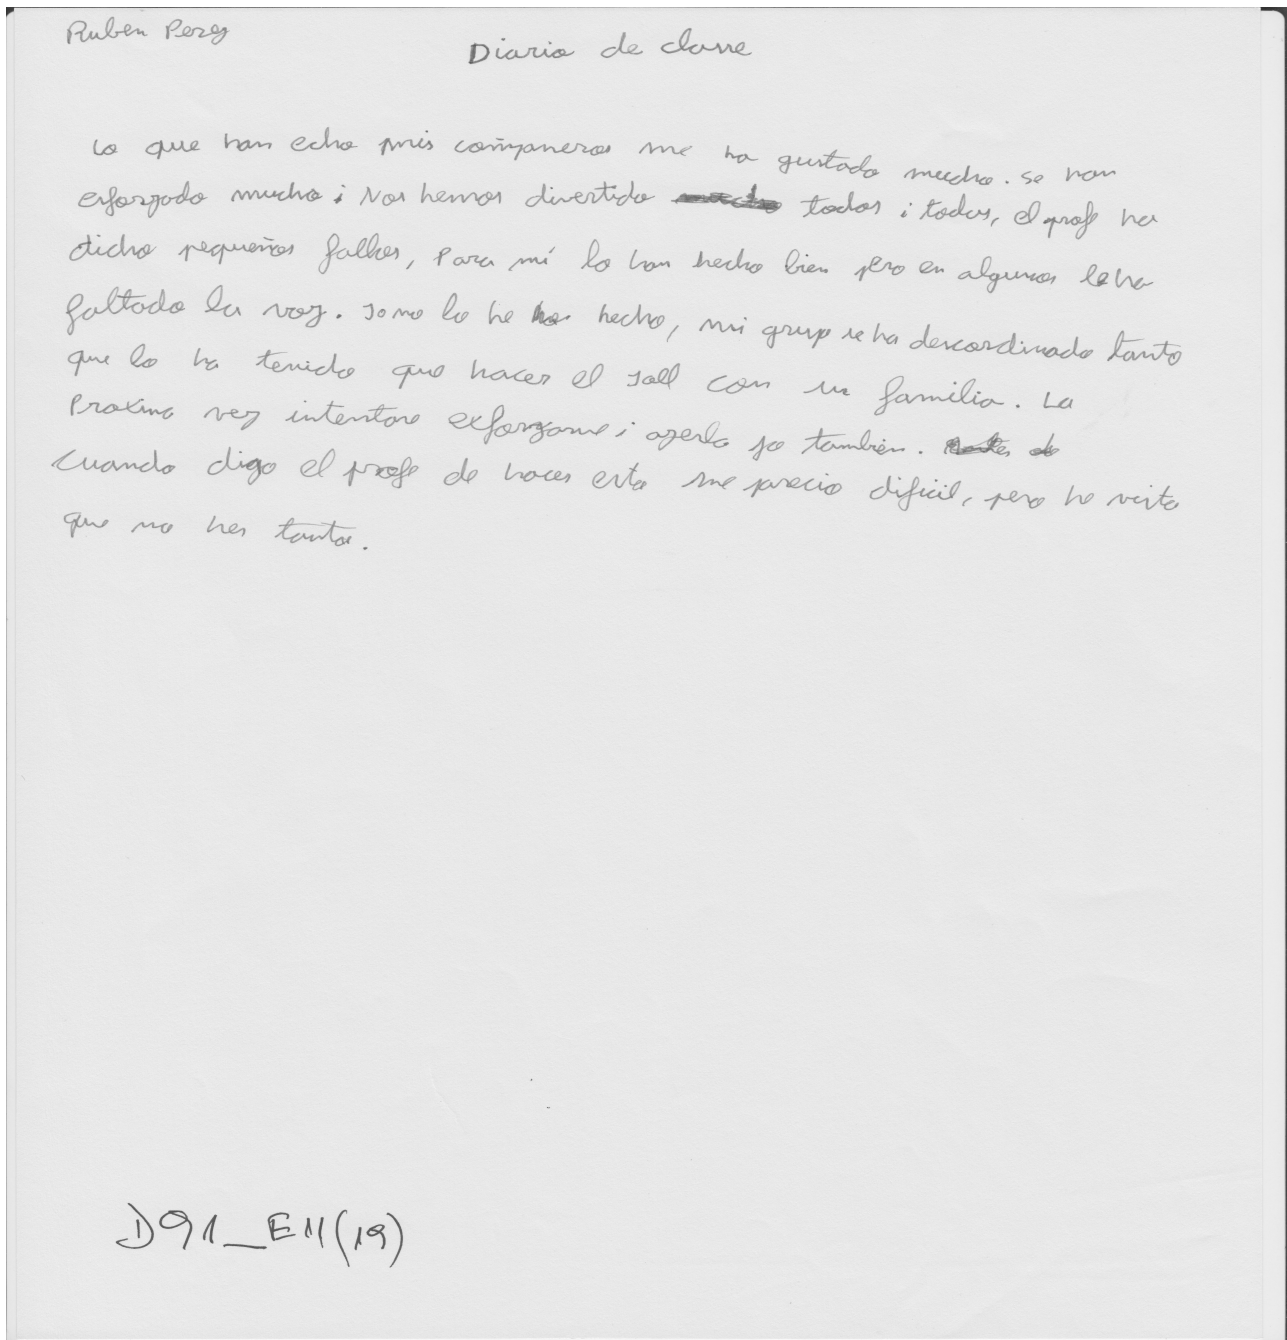 Ruben Perez
Diario de classe
Lo que han echo mis compañeros me ha gustado mucho. Se han
esforzado mucho i Nos hemos divertido todos i todas, el profe ha
dicho pequeños fallos, Para mí lo han hecho bien pero en algunos le ha
faltado la voz. Jo no lo he hecho, mi grup se ha descordinado tanto
que lo ha tenido que hacer el Joll con su familia. La
Proxima vez intentare exforzarme i azerlo jo tambien.
Cuando digo el profe de hacer esto me precio dificil, pero he visto
que no hes tanto.
D91_E11(19)